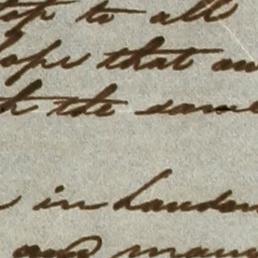 top to all
ope that an
h the same
in London
and many